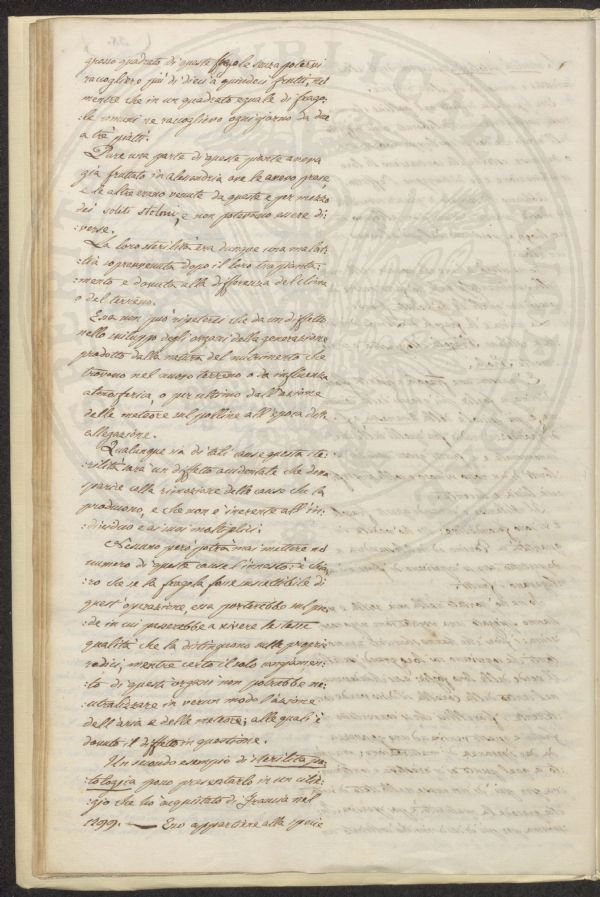 grosso quadrato di queste fragole senza potervi
raccogliere più di dieci a quindeci frutti, nel
mentre che in un quadrato eguale di frago:
:le comuni ne raccoglievo ogni giorno da due
a tre piatti.
Pure una parte di queste piante aveva
già fruttato in Alessandria ove le avevo prese
e le altre erano venute da queste e per mezzo
dei soliti stoloni, e non potevano essere di:
:verse.
La loro sterilità era dunque una malat:
:tia sopravvenuta dopo il loro trapianta:
:mento e dovuta alla differenza del clima
o del terreno.
Essa non può ripetersi che da un difetto
nello sviluppo degli organi della generazione
prodotto dalla natura del nutrimento che
trovano nel nuovo terreno o da influenza
atmosferica, o per ultimo dall'azione
delle meteore sul polline all'epoca della
allegazione.
Qualunque sia di tali cause questa ste:
:rilità sarà un difetto accidentale che
sparirà colla rimozione delle cause che la
producono, e che non è inerente all'in:
:dividuo e ai suoi moltiplici.
Nessuno però potrà mai mettere nel
numero di queste cause l'innesto: è chia:
:ro che se la fragola fosse suscettibile di
quest'operazione, essa porterebbe sul pie:
:de in cui passerebbe a vivere le stesse
qualità che la distinguono sulle proprie
radici, mentre certo il solo cangiamen:
:to di questi organi non potrebbe ne:
:utralizzare in verun modo l'azione
dell'aria e delle meteore, alle quali è
dovuto il difetto in questione.
Un secondo esempio di sterilità pa:
:tologica posso presentarlo in un cilie:
:gio che ho acquistato di Francia nel
1799. — Esso appartiene alla specie